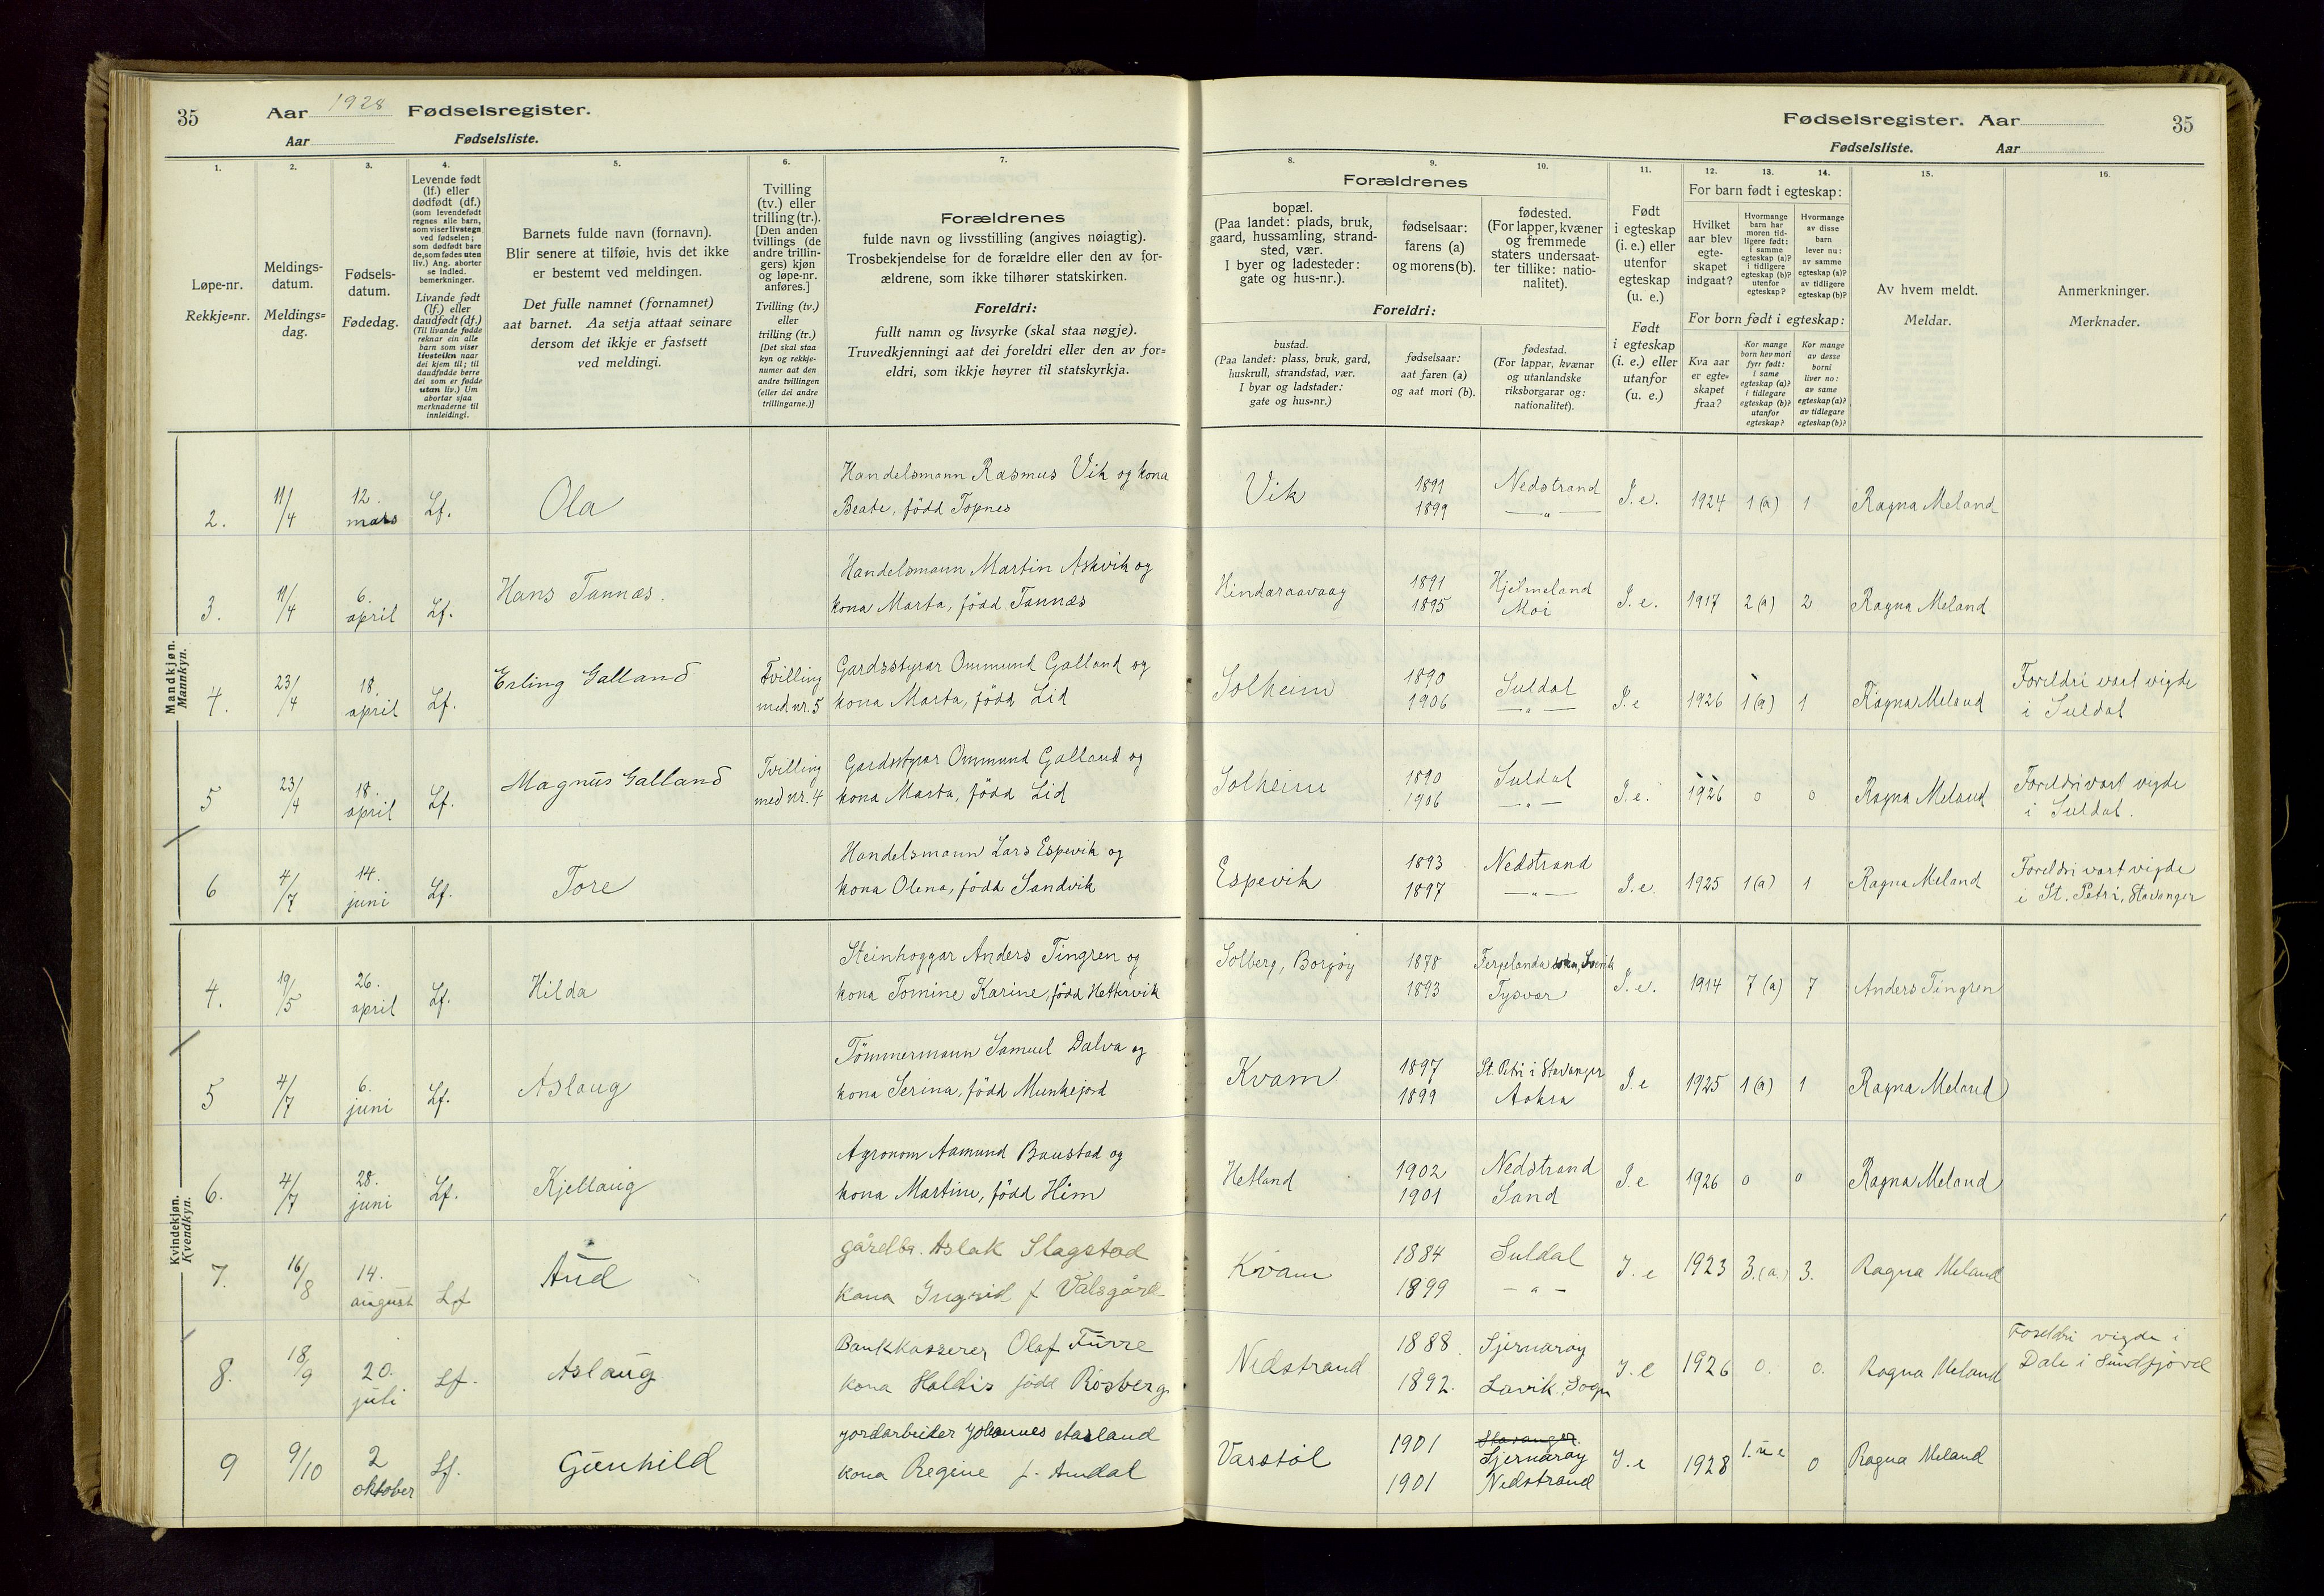 35 Aar 1928 Fødselsregister.
Aar Fødselsliste.
Fødselsregister. Aar 35
Fødselsliste. Aar
1. 2. 3. 4. 5. 6. 7. 8. 9. 10. 11. 12. 13. 14. 15. 16.
Løpe-nr.
Rekkje=nr.
Meldings-
datum.
Meldings=
dag.
Fødsels-
datum.
Fødedag.
Levende født
(lf.) eller
dødfødt (df.)
(som levendefødt
regnes alle barn,
som viser livstegn
ved fødselen;
som dødfødt bare
de, som fødes uten
liv.) Ang. aborter
se indled.
bemerkninger.
Livande født
(lf.) eller
daudfødt (df.)
(Til livande fødde
reknar ein alle
barn som viser
livsteikn naar
dei kjem til; til
daudfødde berre
dei som er fødde
utan liv.) Um
abortar sjaa
merknaderne til
innleidingi.
Barnets fulde navn (fornavn).
Blir senere at tilføie, hvis det ikke
er bestemt ved meldingen.
Det fulle namnet (fornamnet)
aat barnet. Aa setja attaat seinare
dersom det ikkje er fastsett
ved meldingi.
Tvilling
(tv.) eller
trilling (tr.).
[Den anden
tvillings (de
andre trillin-
gers) kjøn
og løpe-nr.
anføres.]
Tvilling (tv.)
eller
trilling (tr.)
[Det skal staa
kyn og rekkje-
numer aat den
andre tvillingen
(eller dei andre
trillingarne.)]
Forældrenes
fulde navn og livsstilling (angives nøiagtig).
Trosbekjendelse for de forældre eller den av for-
ældrene, som ikke tilhører statskirken.
Foreldri:
fullt namn og livsyrke (skal staa nøgje).
Truvedkjenningi aat dei foreldri eller den av for=
eldri, som ikkje høyrer til statskyrkja.
Forældrenes
bopæl.
(Paa landet: plads, bruk,
gaard, hussamling, strand-
sted, vær.
I byer og ladesteder:
gate og hus-nr.).
fødselsaar:
farens (a)
og morens (b).
fødested.
(For lapper, kvæner
og fremmede
staters undersaat-
ter tillike: natio-
nalitet).
Foreldri:
bustad.
(Paa landet: plass, bruk, gard,
huskrull, strandstad, vær.
I byar og ladstader:
gate og hus=nr.)
fødselsaar:
aat faren (a)
og aat mori (b).
fødestad.
(For lappar, kvænar
og utanlandske
riksborgarar og:
nationalitet).
Født
i egteskap
(i. e.) eller
utenfor
egteskap
(u. e.)
Født
i egteskap
(i. e.) eller
utanfor
(u. e.)
For barn født i egteskap:
Hvilket
aar blev
egte-
skapet
indgaat?
Hvormange
barn har
moren tid-
ligere født:
i samme
egteskap (a)?
i tidligere
egteskap (b)?
utenfor
egteskap?
Hvormange
av disse
barn
lever nu:
av samme
egteskap (a)?
av tidligere
egteskap (b)?
For born født i egteskap:
Kva aar
er egte=
skapet
fraa?
Kor mange
born hev mori
fyrr født:
i same
egteskap (a)?
i tidlegare
egteskap (b)?
utanfor
egteskap?
Kor mange
av desse
borni
liver no:
av same
egteskap (a)?
av tidlegare
egteskap (b)?
Av hvem meldt.
Meldar.
Anmerkninger.
Merknader.
Mandkjøn.
Mannkyn.
2. 11/4 12. mars Lf. Ola Handelsmann Rasmus Vik og kona
Beate, född Topnes Vik 1891 1899 Nedstrand —"— I. e. 1924 1(a) 1 Ragna Meland
3. 11/4 6. april Lf. Hans Tannæs. Handelsmann Martin Askvik og
kona Marta, född Tannæs Hindaraavaag 1891 1895 Hjelmeland Moi I. e. 1917 2(a) 2 Ragna Meland
4. 23/4 18. april Lf. Erling Galland Tvilling med nr. 5 Gardsstyrar Ommund Galland og
kona Marta, född Lid Solheim 1890 1906 Suldal —"— I. e 1926 1(a) 1 Ragna Meland Foreldri vart vigde
i Suldal
5 23/4 18. april Lf. Magnus Galland Tvilling med nr. 4 Gardsstyrar Ommund Galland og
kona Marta, född Lid Solheim 1890 1906 Suldal —"— I. e. 1926 0 0 Ragna Meland Foreldri vart vigde
i Suldal.
6 4/7 14. juni Lf. Tore Handelsmann Lars Espevik og
kona Olena, född Sandvik Espevik 1893 1897 Nedstrand —"— I. e. 1925 1(a) 1 Ragna Meland Foreldri vart vigde
i St. Petri, Stavanger
Kvindekjøn.
Kvendkyn.
4. 19/5 26. april Lf. Hilda Steinhoggar Anders Tingren og
kona Tomine Karine, född Hettervik Solberg, Borgöy 1878 1893 Tysvær I. e. 1914 7(a) 7 Anders Tingren
5 4/7 6. juni Lf. Aslaug Tömmermann Samuel Dalva og
kona Serina, född Munkejord Kvam 1897 1899 St. Petri i Stavanger Aakra I. e 1925 1(a) 1 Ragna Meland
6. 4/7 28. juni Lf. Kjellaug Agronom Aamund Baustad og
kona Martine, född Hiim Hetland 1902 1901 Nedstrand Sand I. e 1926 0 0 Ragna Meland
7. 16/8 14. august Lf Aud gårdbr. Aslak Slagstad
kona Ingrid f Valsgård Kvam 1884 1899 Suldal —"— I. e 1923 3.(a.) 3. Ragna Meland
8. 18/9 20. juli Lf. Aslaug Bankkasserer Olaf Furre
kona Haldis född Rosberg Nedstrand 1888. 1892. Sjernarøy Lavik, Sogn I. e 1926 0. 0. Ragna Meland Foreldri vigde i
Dale i Sundfjord
9 9/10 2 oktober Lf. Gunhild Jordarbeider Johannes Aasland
kona Regine f. Amdal Vasstöl 1901 1901 Stavanger. Sjernarøy Nedstrand I. e 1928 1. u e 0 Ragna Meland